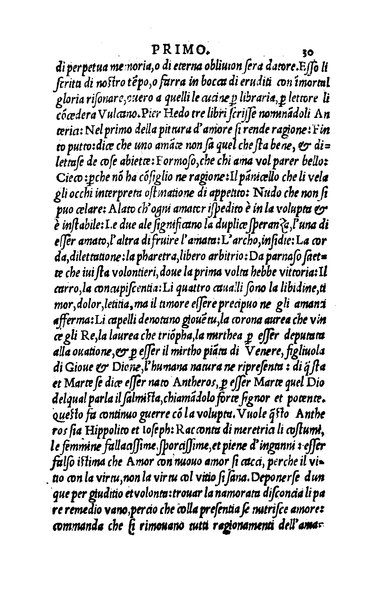 PRIMO. 30
di perpetua memoria, o di eterna oblivion sera datore. Esso li
scrita di nostro tẽpo, o farra in bocca di eruditi con ĩmortal
gloria risonare, ouero a quelli le cucine ꝑ libraria, ꝑ lettore li
cõcedera Vulcano. Pier Hedo tre libri scrisse nomnãdoli An
teria: Nel primo della pitura d'amore si rende ragione: Fin
to putto: dice che uno amãte non sa quel che sta bene, & di=
lettase de cose abiette: Formoso, che chi ama vol parer bello:
Cieco: ꝑche nõ ha cõsiglio ne ragione: Il pãnicello che li vela
gli occhi interpreta ostinatione di appetto: Nudo che non si
puo celare: Alato ch'ogni amater ispedito è in la volupta &
è instabile: Le due ale significano la duplice sperãza, l'una di
esser amato, l'altra di fruire l'amata: L'archo, insidie: La cor
da, dilettatione: la pharetra, libero arbitrio: Da parnaso saet=
te che iui sta volontieri, doue la prima volta hebbe vittoria: Il
carro, la concupiscentia: Li quattro caualli sono la libidine, ti
mor, dolor, letitia, ma il timore essere precipuo ne gli amanti
afferma: Li capelli denotano giouẽtu, la corona aurea che vin
ce gli Re, la laurea che triõpha, la mirthea ꝑ esser deputata
alla ouatione, & ꝑ esser il mirtho piãta di Venere, figliuola
di Gioue & Dione, l'humana natura ne ripresenta: di q̃sta
et Marte se dice esser nato Antheros, ꝑ esser Marte quel Dio
del qual parla il salmista, chiamãdolo forte signor et potente.
Questo fa continuo guerre cõ la volupta. Vuole q̃sto Anthe
ros sia Hippolito et Ioseph: Racconta di meretria li costumi,
le femmine fallacissime, sporcissime, et piene d'inganni: esser
falso istima che Amor con nuouo amor si cacci, perche il vi=
tio con la virtu, non la virtu col vitio si sana. Deponerse dun
que per giuditio et volonta: trouar la namorata discõcia li pa
re remedio vano, percio che colla presentia se nutrisce amore:
commanda che si rimouano tutti ragionamenti dell'amar